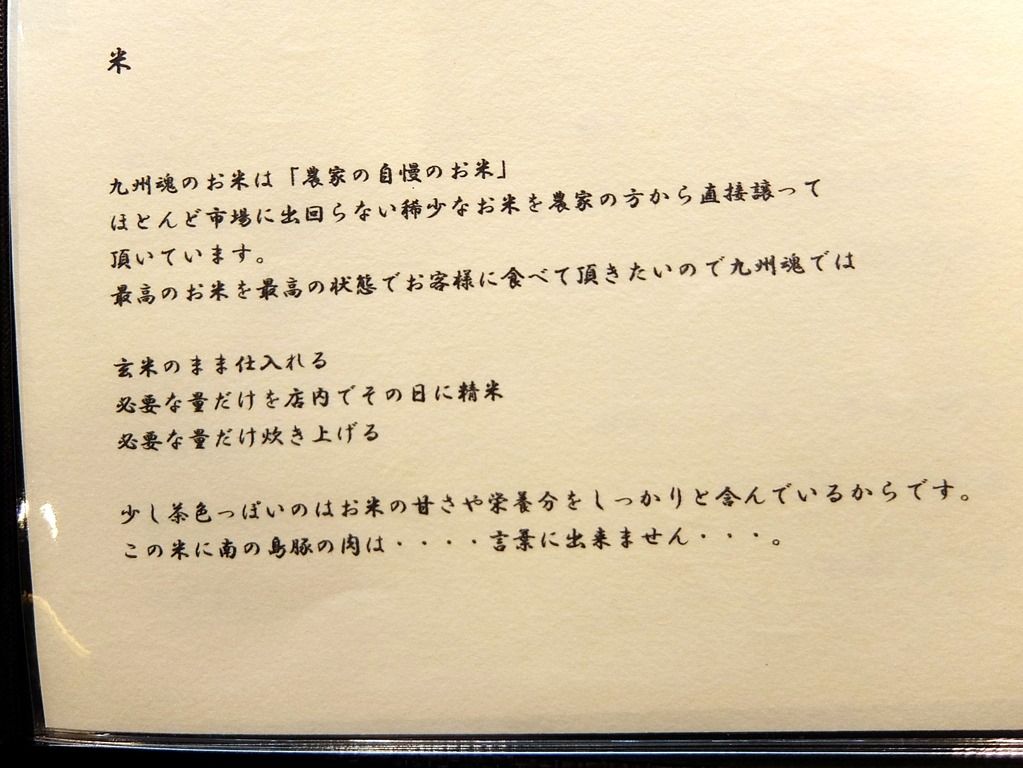 米
九州魂のお米は「農家の自慢のお米」
ほとんど市場に出回らない稀少なお米を農家の方から直接譲って
頂いています。
最高のお米を最高の状態でお客様に食べて頂きたいので九州魂では
玄米のまま仕入れる
必要な量だけを店内でその日に精米
必要な量だけ炊き上げる
少し茶色っぽいのはお米の甘さや栄養分をしっかりと含んでいるからです。
この米に南の島豚の肉は・・・・言葉に出来ません・・・。